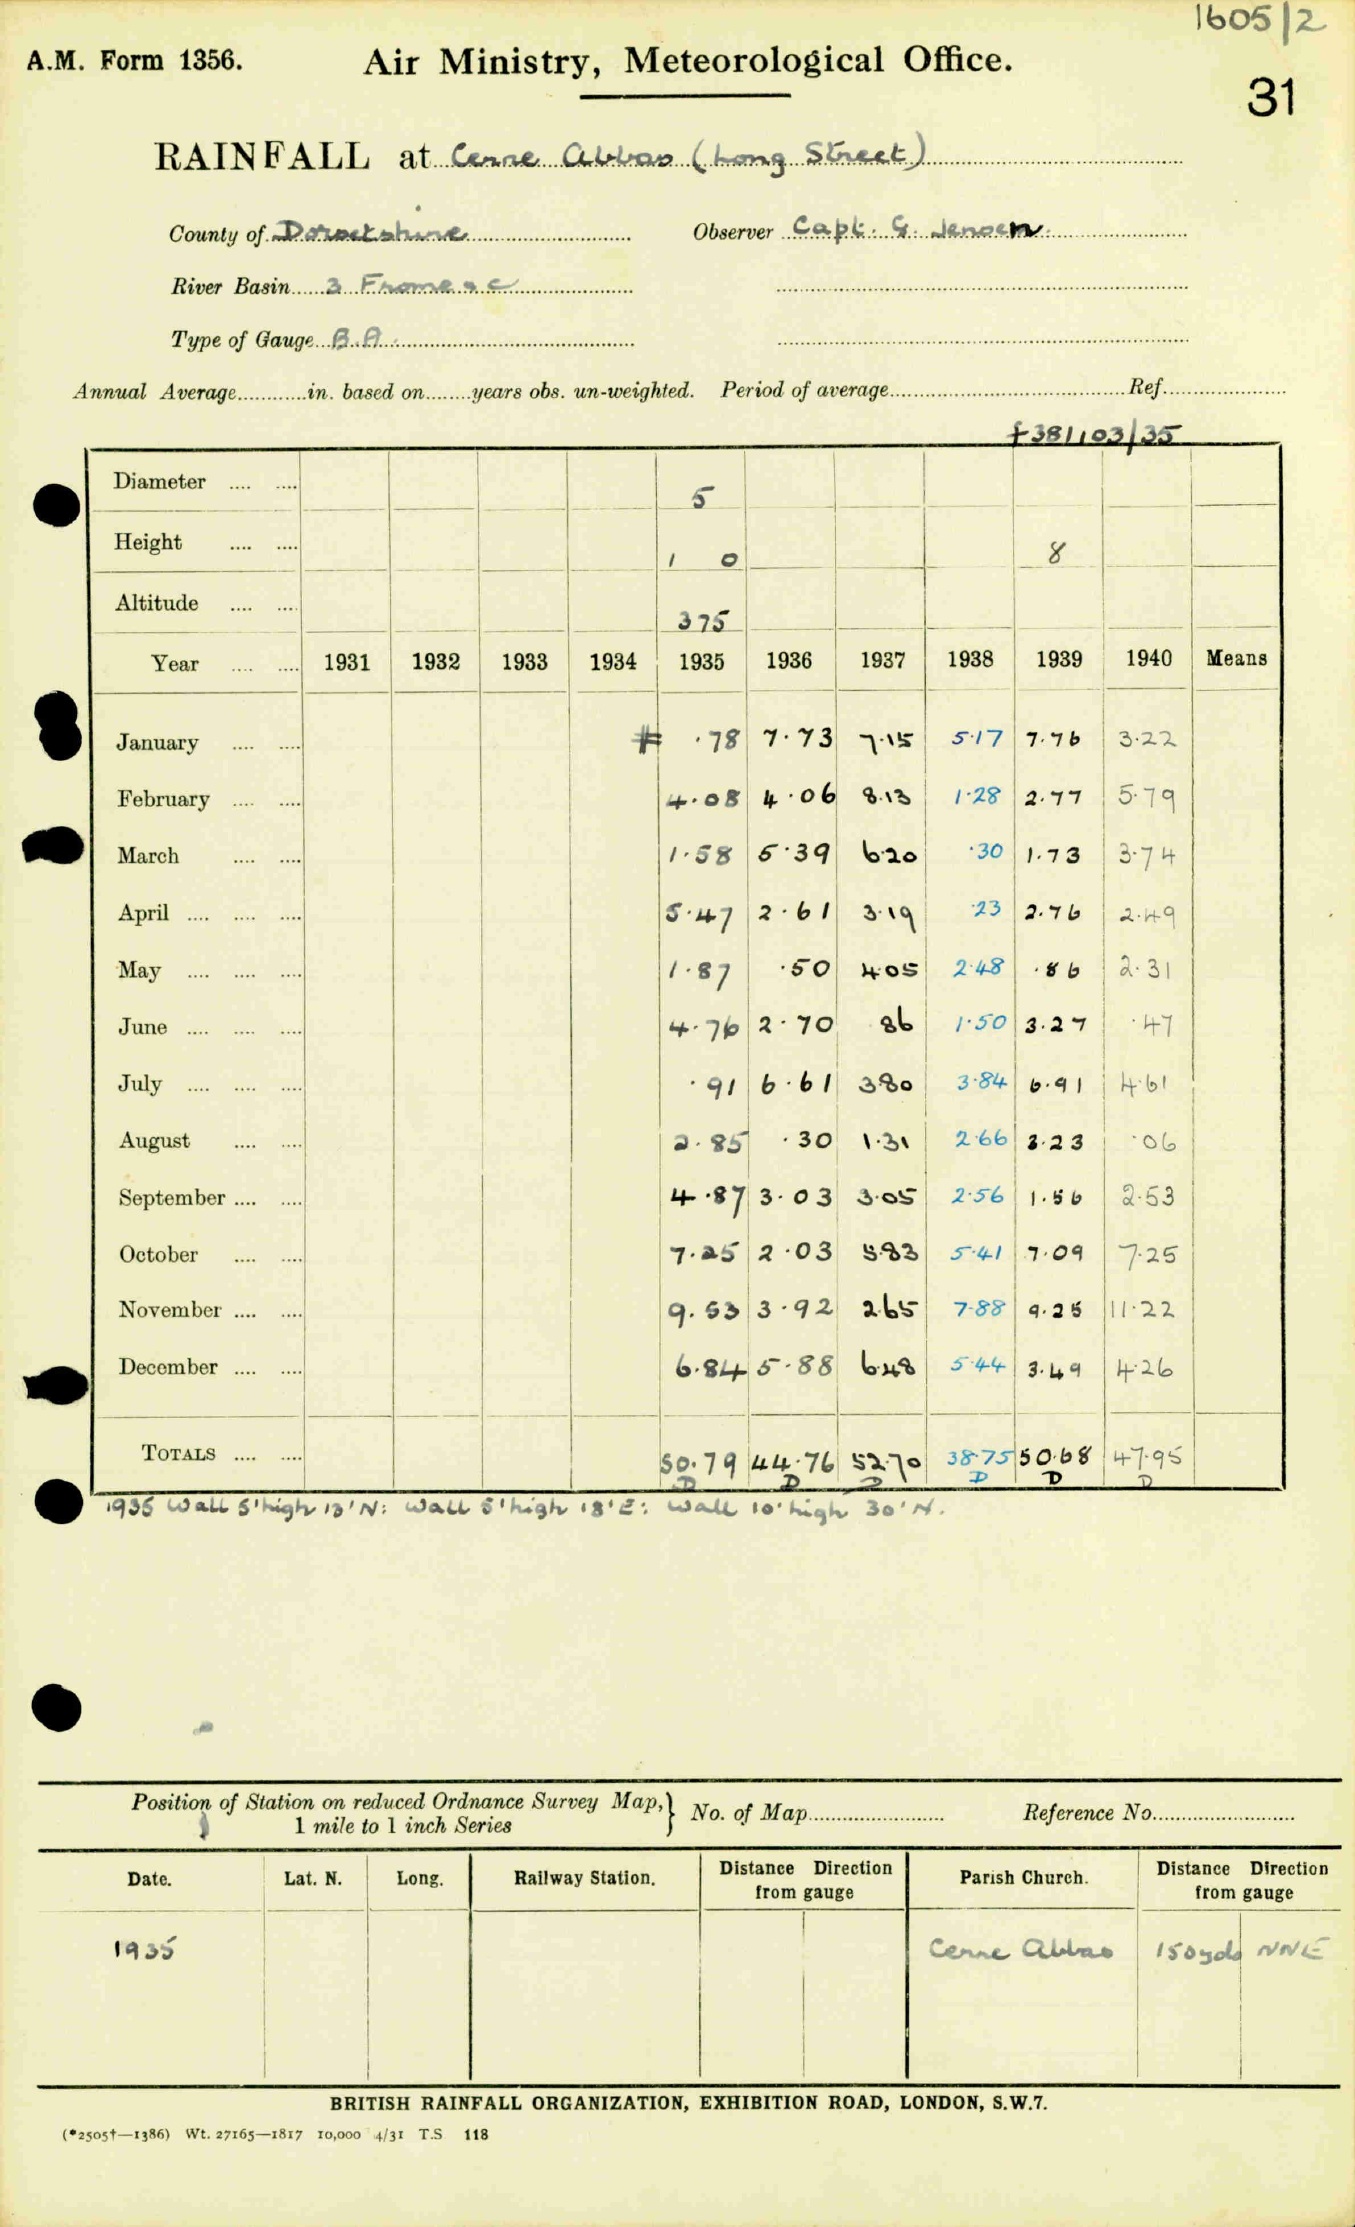 1605/2
A.M. Form 1356. Air Ministry, Meteorological Office.
31
RAINFALL at Cerne Abbas (Long Street)
County of Dorsetshire Observer Capt. G. Jensen.
River Basin 3 Frome &c
Type of Gauge B.A.
Annual Average............in. based on........years obs. un-weighted. Period of average........................................Ref......................
£381,103/35
Diameter .... .... 5
Height .... .... 1 0 8
Altitude .... .... 375
Year .... .... 1931 1932 1933 1934 1935 1936 1937 1938 1939 1940 Means
January .... .... # ·78 7·73 7·15 5·17 7·76 3·22
February .... .... 4·08 4·06 8·13 1·28 2·77 5·79
March .... .... 1·58 5·39 6·20 ·30 1·73 3·74
April .... .... .... 5·47 2·61 3·19 ·23 2·76 2·49
May .... .... .... 1·87 ·50 4·05 2·48 ·86 2·31
June .... .... .... 4·76 2·70 86 1·50 3·27 ·47
July .... .... .... ·91 6·61 3·80 3·84 6·91 4·61
August .... .... 2·85 ·30 1·31 2·66 3·23 ·06
September .... .... 4·87 3·03 3·05 2·56 1·56 2·53
October .... .... 7·25 2·03 5·83 5·41 7·09 7·25
November .... .... 9·53 3·92 2·65 7·88 9·25 11·22
December .... .... 6·84 5·88 6·48 5·44 3·49 4·26
TOTALS .... .... 50·79 44·76 52·70 38·75 50·68 47·95
D D D D D D
1935 Wall 5' high 13' N: Wall 5' high 18' E: Wall 10' high 30' N.
Position of Station on reduced Ordnance Survey Map,} No. of Map........................ Reference No.........................
1 mile to 1 inch Series
Date. Lat. N. Long. Railway Station. Distance Direction Parish Church. Distance Direction
from gauge from gauge
1935 Cerne Abbas 150yds NNE
BRITISH RAINFALL ORGANIZATION, EXHIBITION ROAD, LONDON, S.W.7.
(*2505†—1386) Wt. 27165—1817 10,000 4/31 T.S 118